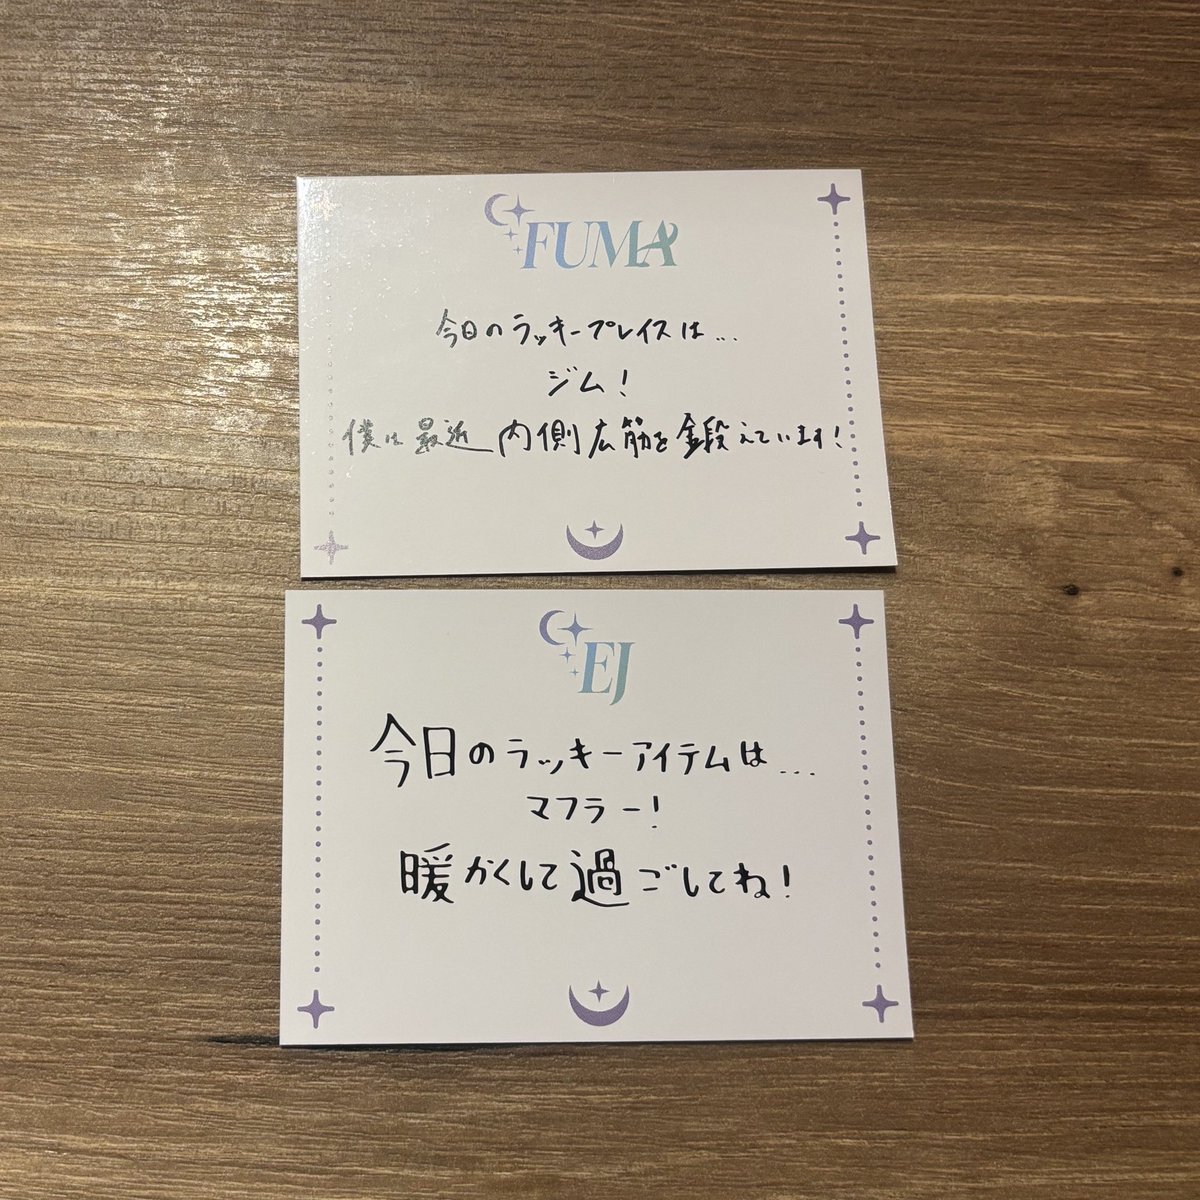 FUMA
今日のラッキープレイスは...
ジム!
僕は最近 内側広筋を鍛えています!
EJ
今日のラッキーアイテムは...
マフラー!
暖かくして過ごしてね!